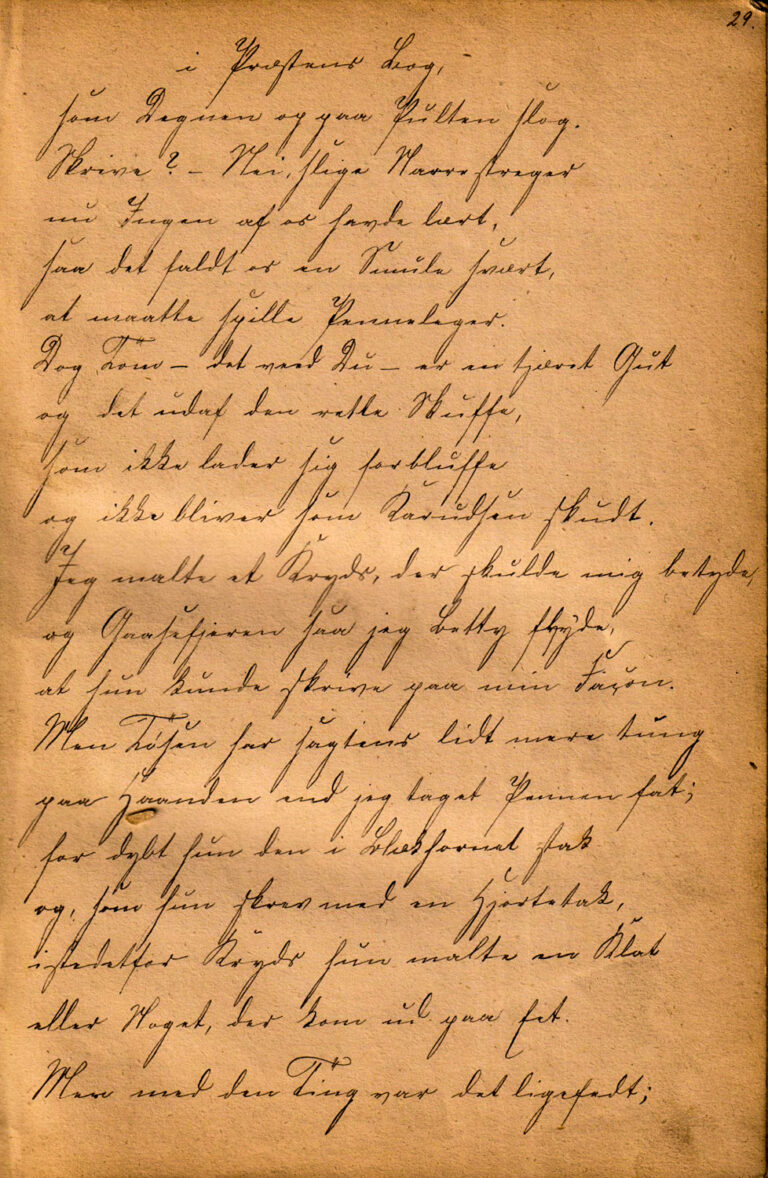 29.
i Præstens Bog,
som Degnen op paa Pulten slog.
Skrive? – Nei, slige Narrestreger
nu Ingen af os havde lært,
saa det faldt os en Smule svært,
at maatte spille Penneleger.
Dog Tom – det veed Du – er en tjæret Gut
og det udaf den rette Skuffe,
som ikke lader sig forbluffe
og ikke bliver som Karudsen skudt.
Jeg malte et Kryds, der skulde mig betyde,
og Gaasefjeren saa jeg Betty flyde,
at hun kunde skrive paa min Façon.
Men Tøsen har sagtens lidt mere tung
paa Haanden end jeg taget Pennen fat;
for dybt hun den i Blækhornet stak
og, som hun skrev med en Hjortetak,
istedetfor Kryds hun malte en Klat
eller Noget, der kom ud paa Eet.
Men med den Ting var det ligefedt;